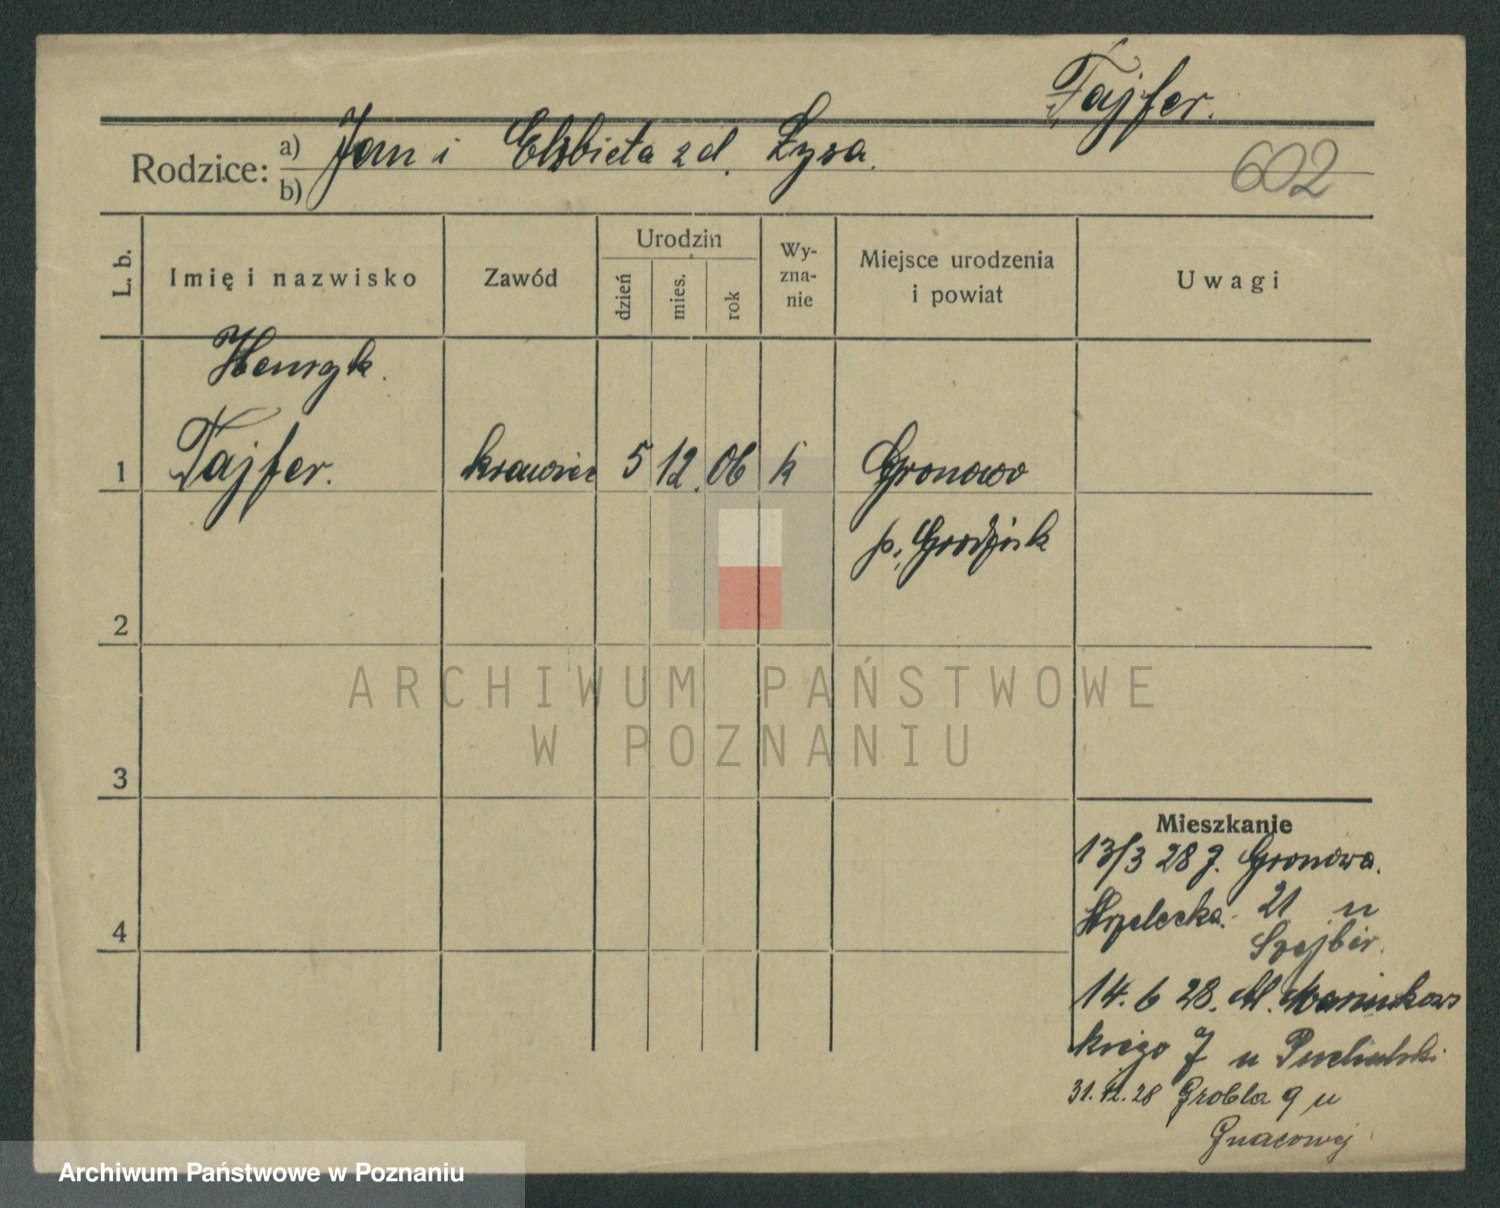 Tajfer.
Rodzice: a) Jan i Elżbieta z d. Łysa.
b)
602
L. b.
Imię i nazwisko
Zawód
Urodzin
dzień
mies.
rok
Wy-
zna-
nie
Miejsce urodzenia
i powiat
Uwagi
Henryk.
1 Tajfer. krawiec 5 12. 06 k Gronowo
p. Grodzisk
2
3
4
ARCHIWUM PAŃSTWOWE
W POZNANIU
Mieszkanie
13/3 28 z. Gronowa.
Strzelecka. 21 u
Szejber.
14. 6 28. M. Marcinkows
kiego 7 u Puchalski
31. 12. 28 Grobla 9 u
Gnacowej
Archiwum Państwowe w Poznaniu